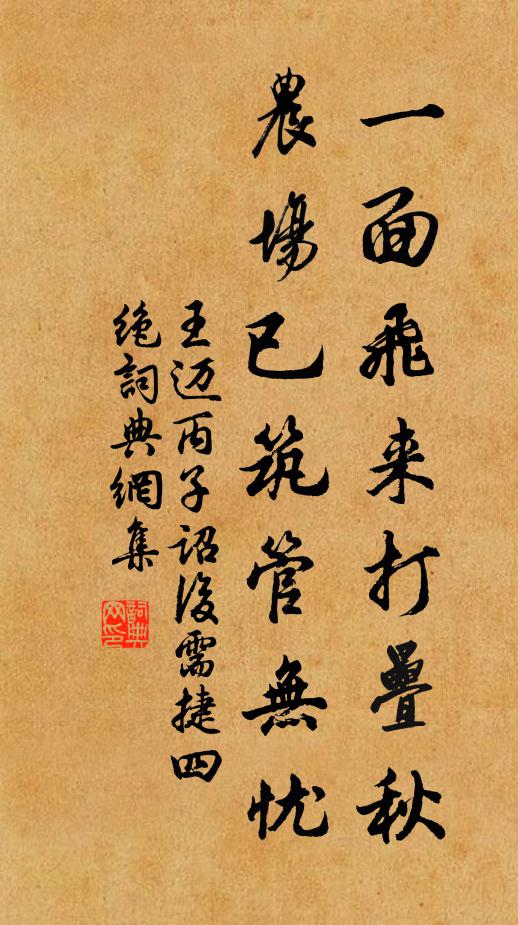 一面飛来打疊秋
農場已筑管無忧
王迈丙子诏後需捷四
绝詞典網集
詞典网印